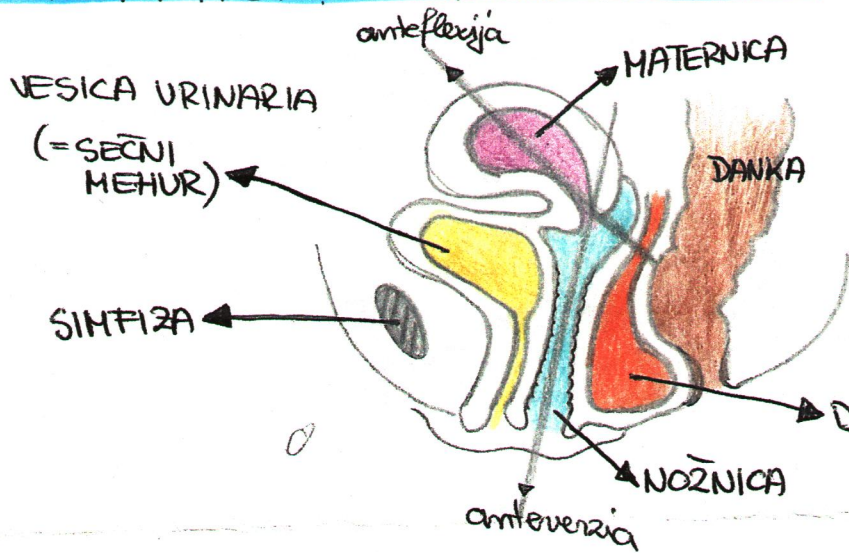 anteflexija
MATERNICA
VESICA URINARIA
(=SEČNI
MEHUR)
DANKA
SIMFIZA
D
NOŽNICA
anteverzia